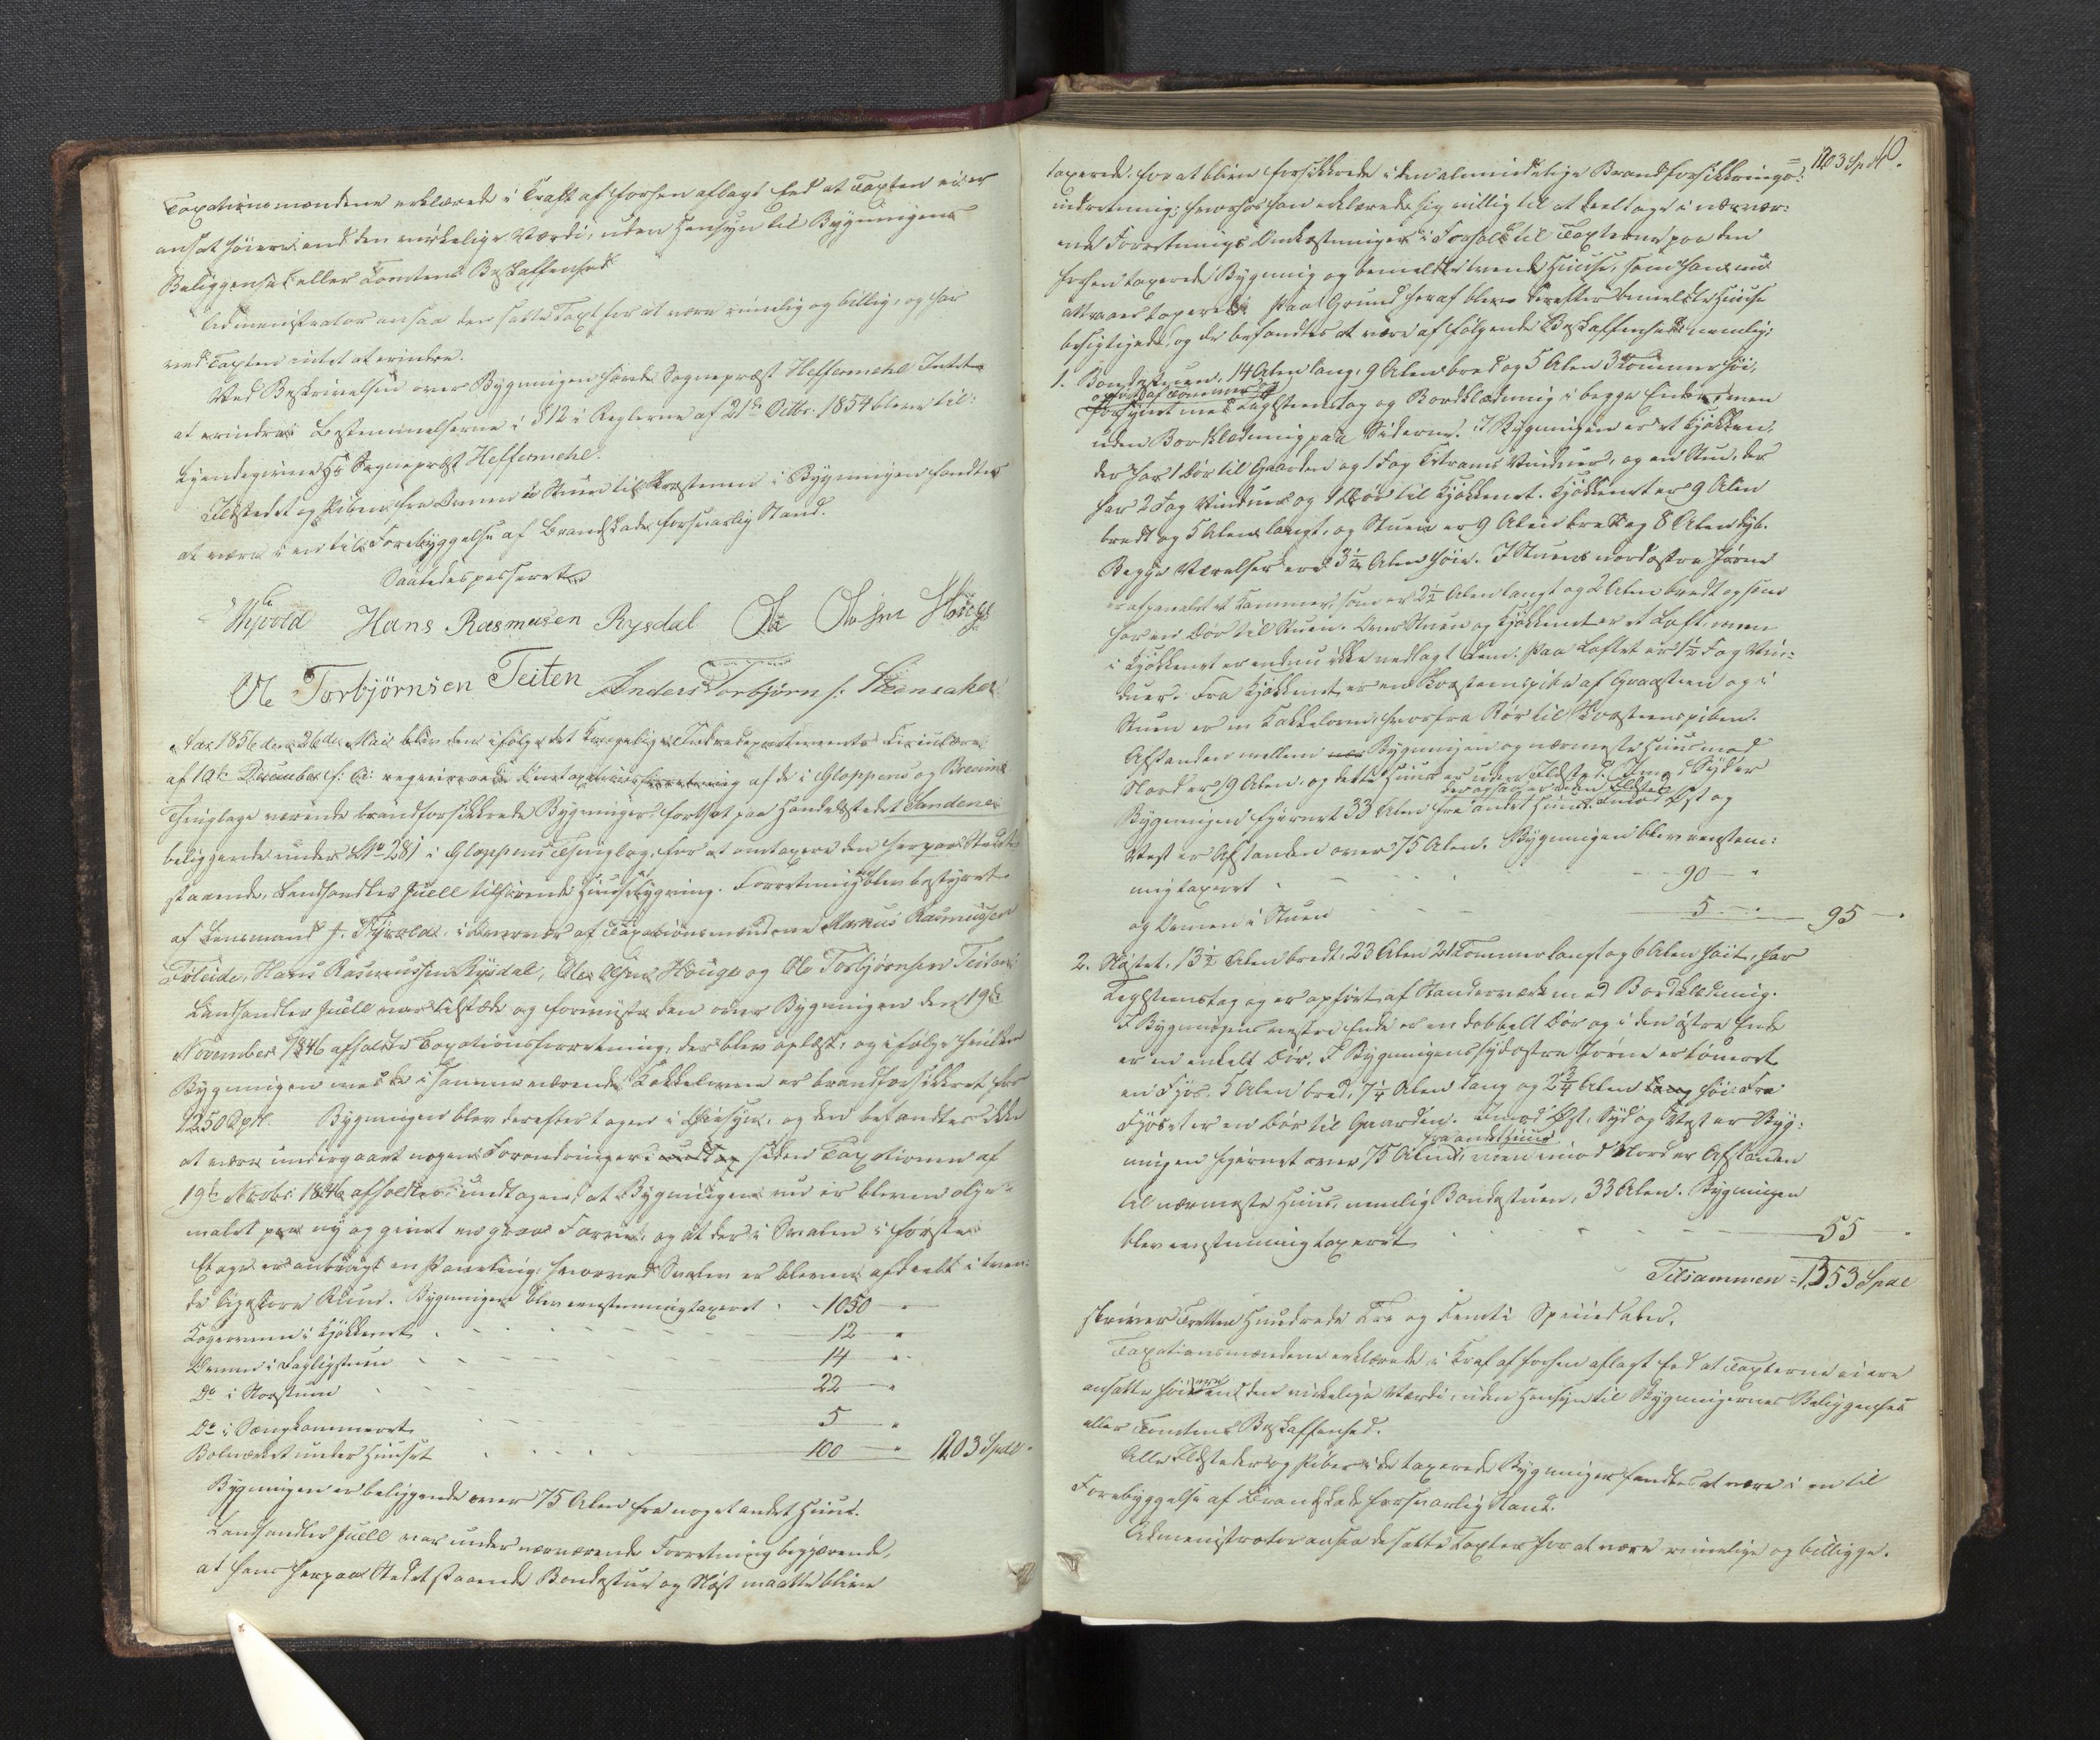 Taxationsmændene erklærede i Kraft af forhen aflagt Eed at Taxten ei er
ansat høiere end den virkelige Værdi, uden Hensyn til Bygningens
Beliggenhed eller Tomtens Beskaffenhed.
Administrator ansaa den satte Taxt for at være rimelig og billig, og har
ved Taxten intet at erindre.
Ved Beskrivelsen over Bygningen havde Sognepræst Heffermehl Intet
at erindre. Bestemmelserne i § 12 i Reglerne af 21de Octbr. 1854 bleve til-
kjendegivne Hr. Sognepræst Heffermehl.
Ildstedet og Piben fra Ovnen i Stuen til Skorstenen i Bygningen fandtes
at være i en til Forebyggelse af Brandskade forsvarlig Stand.
Saaledes passeret
Hans Rasmusen Rysdal Ole Olsen Houge
Ole Torbjörnsen Teiten Anders Torbjørns. Steensaker
Aar 1856 den 26de Mai blev den ifølge det Kongelige Indredepartements Circulære
af 19de December f: A: reqvirerede Omtaxationsforretning af de i Gloppens og Breims
Thinglage værende brandforsikkrede Bygninger fortsat paa Handelsstedet Sandene
beliggende under No 281 i Gloppens Thinglag, for at omtaxere den herpaa Stedet
staaende, Landhandler Juell tilhørende Huusbygning. Forretningen blev bestyret
af Lensmand J. i Overvær af Taxationsmændene Markus Rasmussen
Føleide, Hans Rasmussen Rysdal, Ole Olsen Houge og Ole Torbjørnsen Teiten.
Landhandler Juell var tilstæde og foreviste den over Bygningen den 19de
November 1846 afholdte Taxationsforretning, der blev oplæst, og ifølge hvilken
Bygningen med de i samme værende Kakkelovne er brandforsikkret for
1250 Spdl. Bygningen blev derefter tagen i Øiesyn, og den befandtes ikke
at være undergaaet nogen Forandringer siden Taxationen af
19de Novbr: 1846 afholdtes, undtagen at Bygningen nu er bleven olje-
malet paa ny og givet en graa Farve, og at der i Svalen i første
Etage er anbragt en Paneling, hvorved Svalen er bleven afdeelt i tven-
de ligestore Rum. Bygningen blev eenstemmig taxeret - 1050 - "
Kogeovnen i Kjøkkenet - 12 - "
Ovnen i Dagligstuen - 14 - "
Do i Storstuen - 22 - "
Do i Sængkammeret - 5 - "
Bolværket under Huuset - 100 - " 1203 Spdl.
Bygningen er beliggende over 75 Alen fra noget andet Huus.
Landhandler Juell var under nærværende Forretning begjærende,
at hans herpaa Stedet staaende Bondestue og Nøst maatte blive
1203 Spdl 40.
taxerede for at blive forsikkrede i den almindelige Brandforsikkrings-
indretning; hvorhos han erklærede sig villig til at deeltage i nærvær-
ende Forretnings Omkostninger i Forhold til Taxterne paa den
forhen taxerede Bygning og bemeldte tvende Huuse, som han nu
attraaer taxerede. Paa Grund heraf blev derefter bemeldte Huuse
besigtigede, og de befandtes at være af følgende Beskaffenhed nemlig:
1. Bondestuen, 14 Alen lang, 9 Alen bred og 5 Alen 3 Tommer høi,
opført af Tømmer og
forsynet med Teglsteenstag og Bordklædning i begge Ender, men
uden Bordklædning paa Siderne. I Bygningen er et Kjøkken,
der har 1 Dør til Gaarden og 1 Fag Vinduer, og en Stue, der
har 2 Fag Vinduer og 1 Dør til Kjøkkenet. Kjøkkenet er 9 Alen
bredt og 5 Alen langt, og Stuen er 9 Alen bred og 8 Alen dyb.
Begge Værelser ere 3½ Alen høie. I Stuens nordostre Hjørne
er afpanelet et Kammer, som er 2½ Alen langt og 2 Alen bredt og som
har en Dør til Stuen. Over Stuen og Kjøkkenet er et Loft, men
i Kjøkkenet er endnu ikke nedlagt Lem. Paa Loftet er 1½ Fag Vin-
duer. Fra Kjøkkenet er en Skorsteenspibe af Graasteen og i
Stuen er en Kakkelovn, hvorfra Rør til Skorsteenspiben.
Afstanden mellem Bygningen og nærmeste Huus mod
Nord er 9 Alen, og dette Huus er uden Ildsted. Imod Syd er
der ogsaa er uden Ildsted
Bygningen fjernet 33 Alen fra andet Huus. Imod Øst og
Vest er Afstanden over 75 Alen. Bygningen blev eenstem-
mig taxeret - 90 - "
og Ovnen i Stuen - 5 - " 95 - "
2. Nøstet, 13½ Alen bredt, 23 Alen 21 Tommer langt og 6 Alen høit, har
Teglsteenstag og er opført af Standerværk med Bordklædning.
I Bygningens vestre Ende er en dobbelt Dør og i den østre Ende
er en enkelt Dør. I Bygningens sydostre Hjørne er tømret
en Fjøs, 5 Alen bred, 7¼ Alen lang og 2¾ Alen høi. Fra
Fjøset er en Dør til Gaarden. Imod Øst, Syd og Vest er Byg-
fra andet Huus
ningen fjernet over 75 Alen, men imod Nord er Afstanden
til nærmeste Huus, nemlig Bondestuen, 33 Alen. Bygningen
blev eenstemmig taxeret - 55 - "
Tilsammen = 1353 Spdl
skriver Tretten Hundrede Tre og Femti Speciedaler.
Taxationsmændene erklærede i Kraft af forhen aflagt Eed at Taxterne ei ere
ansatte høiere end den virkelige Værdi, uden Hensyn til Bygningernes Beliggenhed
eller Tomtens Beskaffenhed.
Alle Ildsteder og Piber i de taxerede Bygninger fandtes at være i en til
Forebyggelse af Brandskade forsvarlig Stand.
Administrator ansaa de satte Taxter for at være rimelige og billige.